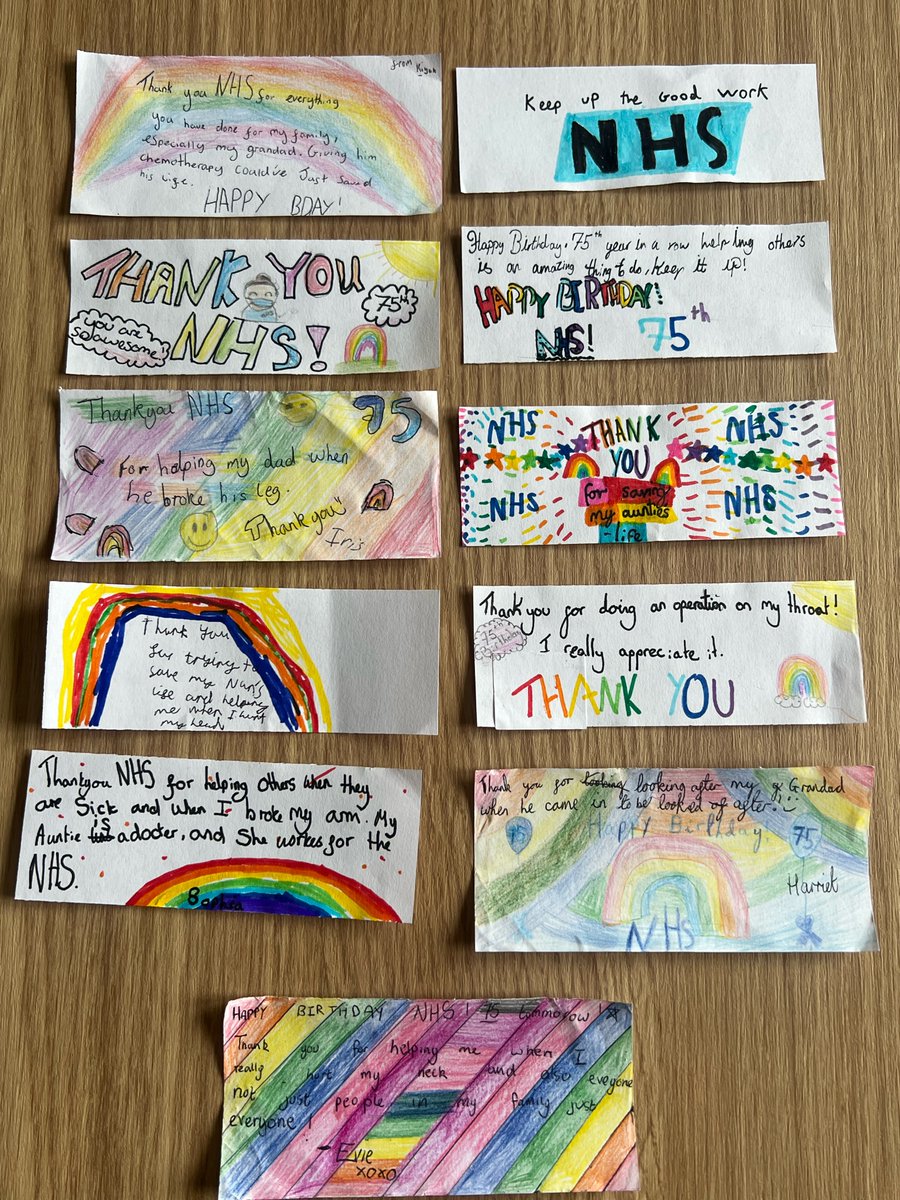 from Kiyah
Thank you NHS for everything
you have done for my family,
especially my grandad. Giving him
chemotherapy could've Just saved
his life.
HAPPY BDAY!
Keep up the Good work
NHS
THANK YOU
75th
you are
so awesome
NHS!
Happy Birthday. 75th year in a row helping others
is an amazing thing to do, keep it up!
HAPPY BIRTHDAY!
NHS! 75th
Thankyou NHS 75
for helping my dad when
he broke his leg.
Thankyou
Iris
NHS THANK NHS
YOU
NHS for saving NHS
my aunties
-life
Thank You
for trying to
save my Nan's
life and helping
me when I hurt
my head
Thank you for doing an operation on my throat!
75th
Birthday
I really appreciate it.
THANK YOU
Thankyou NHS for helping others when they
are Sick and when I broke my arm. My
Auntie is a docter, and She workes for the
NHS.
Sophia
Thank you for looking looking after my Grandad
when he came in to be looked of after.
Happy Birthday.
75 75
Harriet
NHS
HAPPY BIRTHDAY NHS! 75 tommorow!
Thank you for helping me when I
really hurt my neck and also everyone
not just people in my family just
everyone!
- Evie
xoxo